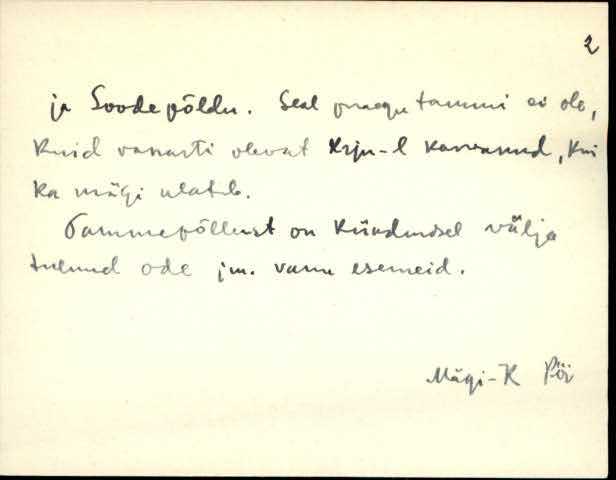 2
ja Soodepõldu. Seal praegu tammi ei ole,
kuid vanasti olevat Krju-l kasvanud, kui
ka mägi ulatub.
Tammepõllust on kündmisel välja
tulnud ode jm. vanu esemeid.
Mägi-K Pöi